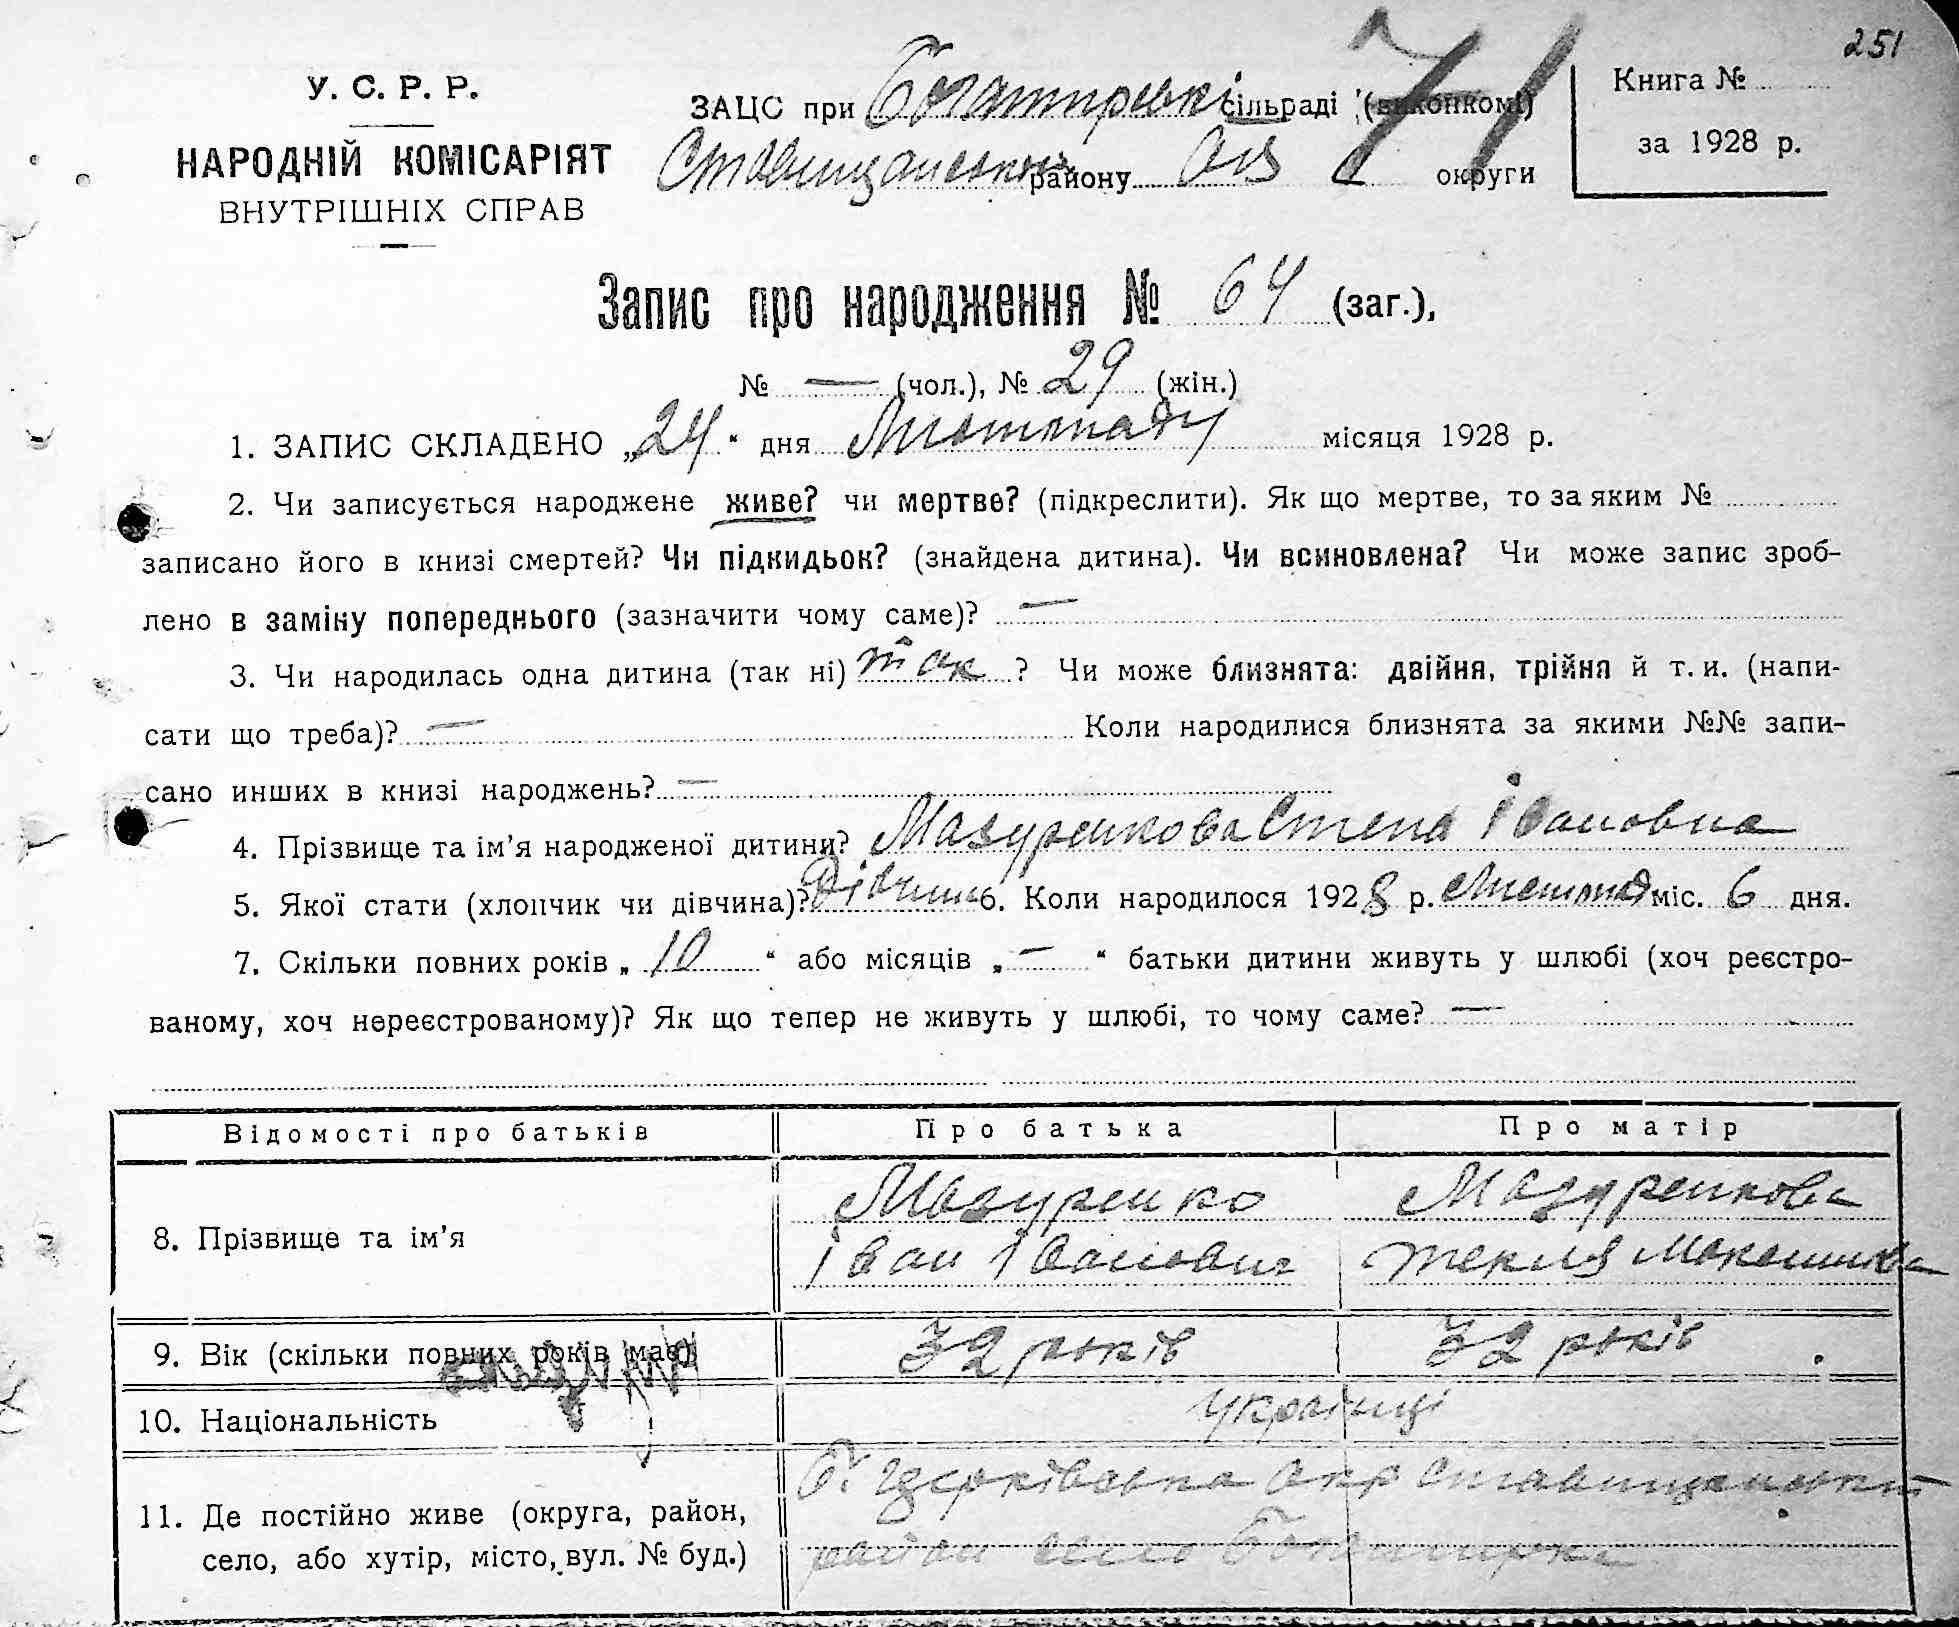 251
У. С. Р. Р.
НАРОДНІЙ КОМІСАРІЯТ
ВНУТРІШНІХ СПРАВ
ЗАЦС при Богатирські сільраді (виконкомі)
Ставищанськ району округи
71
Книга №
за 1928 р.
Запис про народження № 64 (заг.),
№ — (чол.), № 29 (жін.)
1. ЗАПИС СКЛАДЕНО „24“ дня Листопаду місяця 1928 р.
2. Чи записується народжене живе? чи мертве? (підкреслити). Як що мертве, то за яким №
записано його в книзі смертей? Чи підкидьок? (знайдена дитина). Чи всиновлена? Чи може запис зроб-
лено в заміну попереднього (зазначити чому саме)? —
3. Чи народилась одна дитина (так ні) так ? Чи може близнята: двійня, трійня й т. и. (напи-
сати що треба)? — Коли народилися близнята за якими №№ запи-
сано инших в книзі народжень? —
4. Прізвище та ім'я народженої дитини? Мазуренкова Степа Івановна
5. Якої стати (хлопчик чи дівчина)? Дівчина 6. Коли народилося 1928 р. Листопад міс. 6 дня.
7. Скільки повних років „ 10 “ або місяців „ — “ батьки дитини живуть у шлюбі (хоч реєстро-
ваному, хоч нереєстрованому)? Як що тепер не живуть у шлюбі, то чому саме? —
Відомості про батьків Про батька Про матір
8. Прізвище та ім'я Мазуренко Іван Іванович Мазуренкова Текля
9. Вік (скільки повних років має) 32 років 32 років
10. Національність українці
11. Де постійно живе (округа, район, Б. Церківська Окр Ставищанський
село, або хутір, місто, вул. № буд.) район село Богатирка